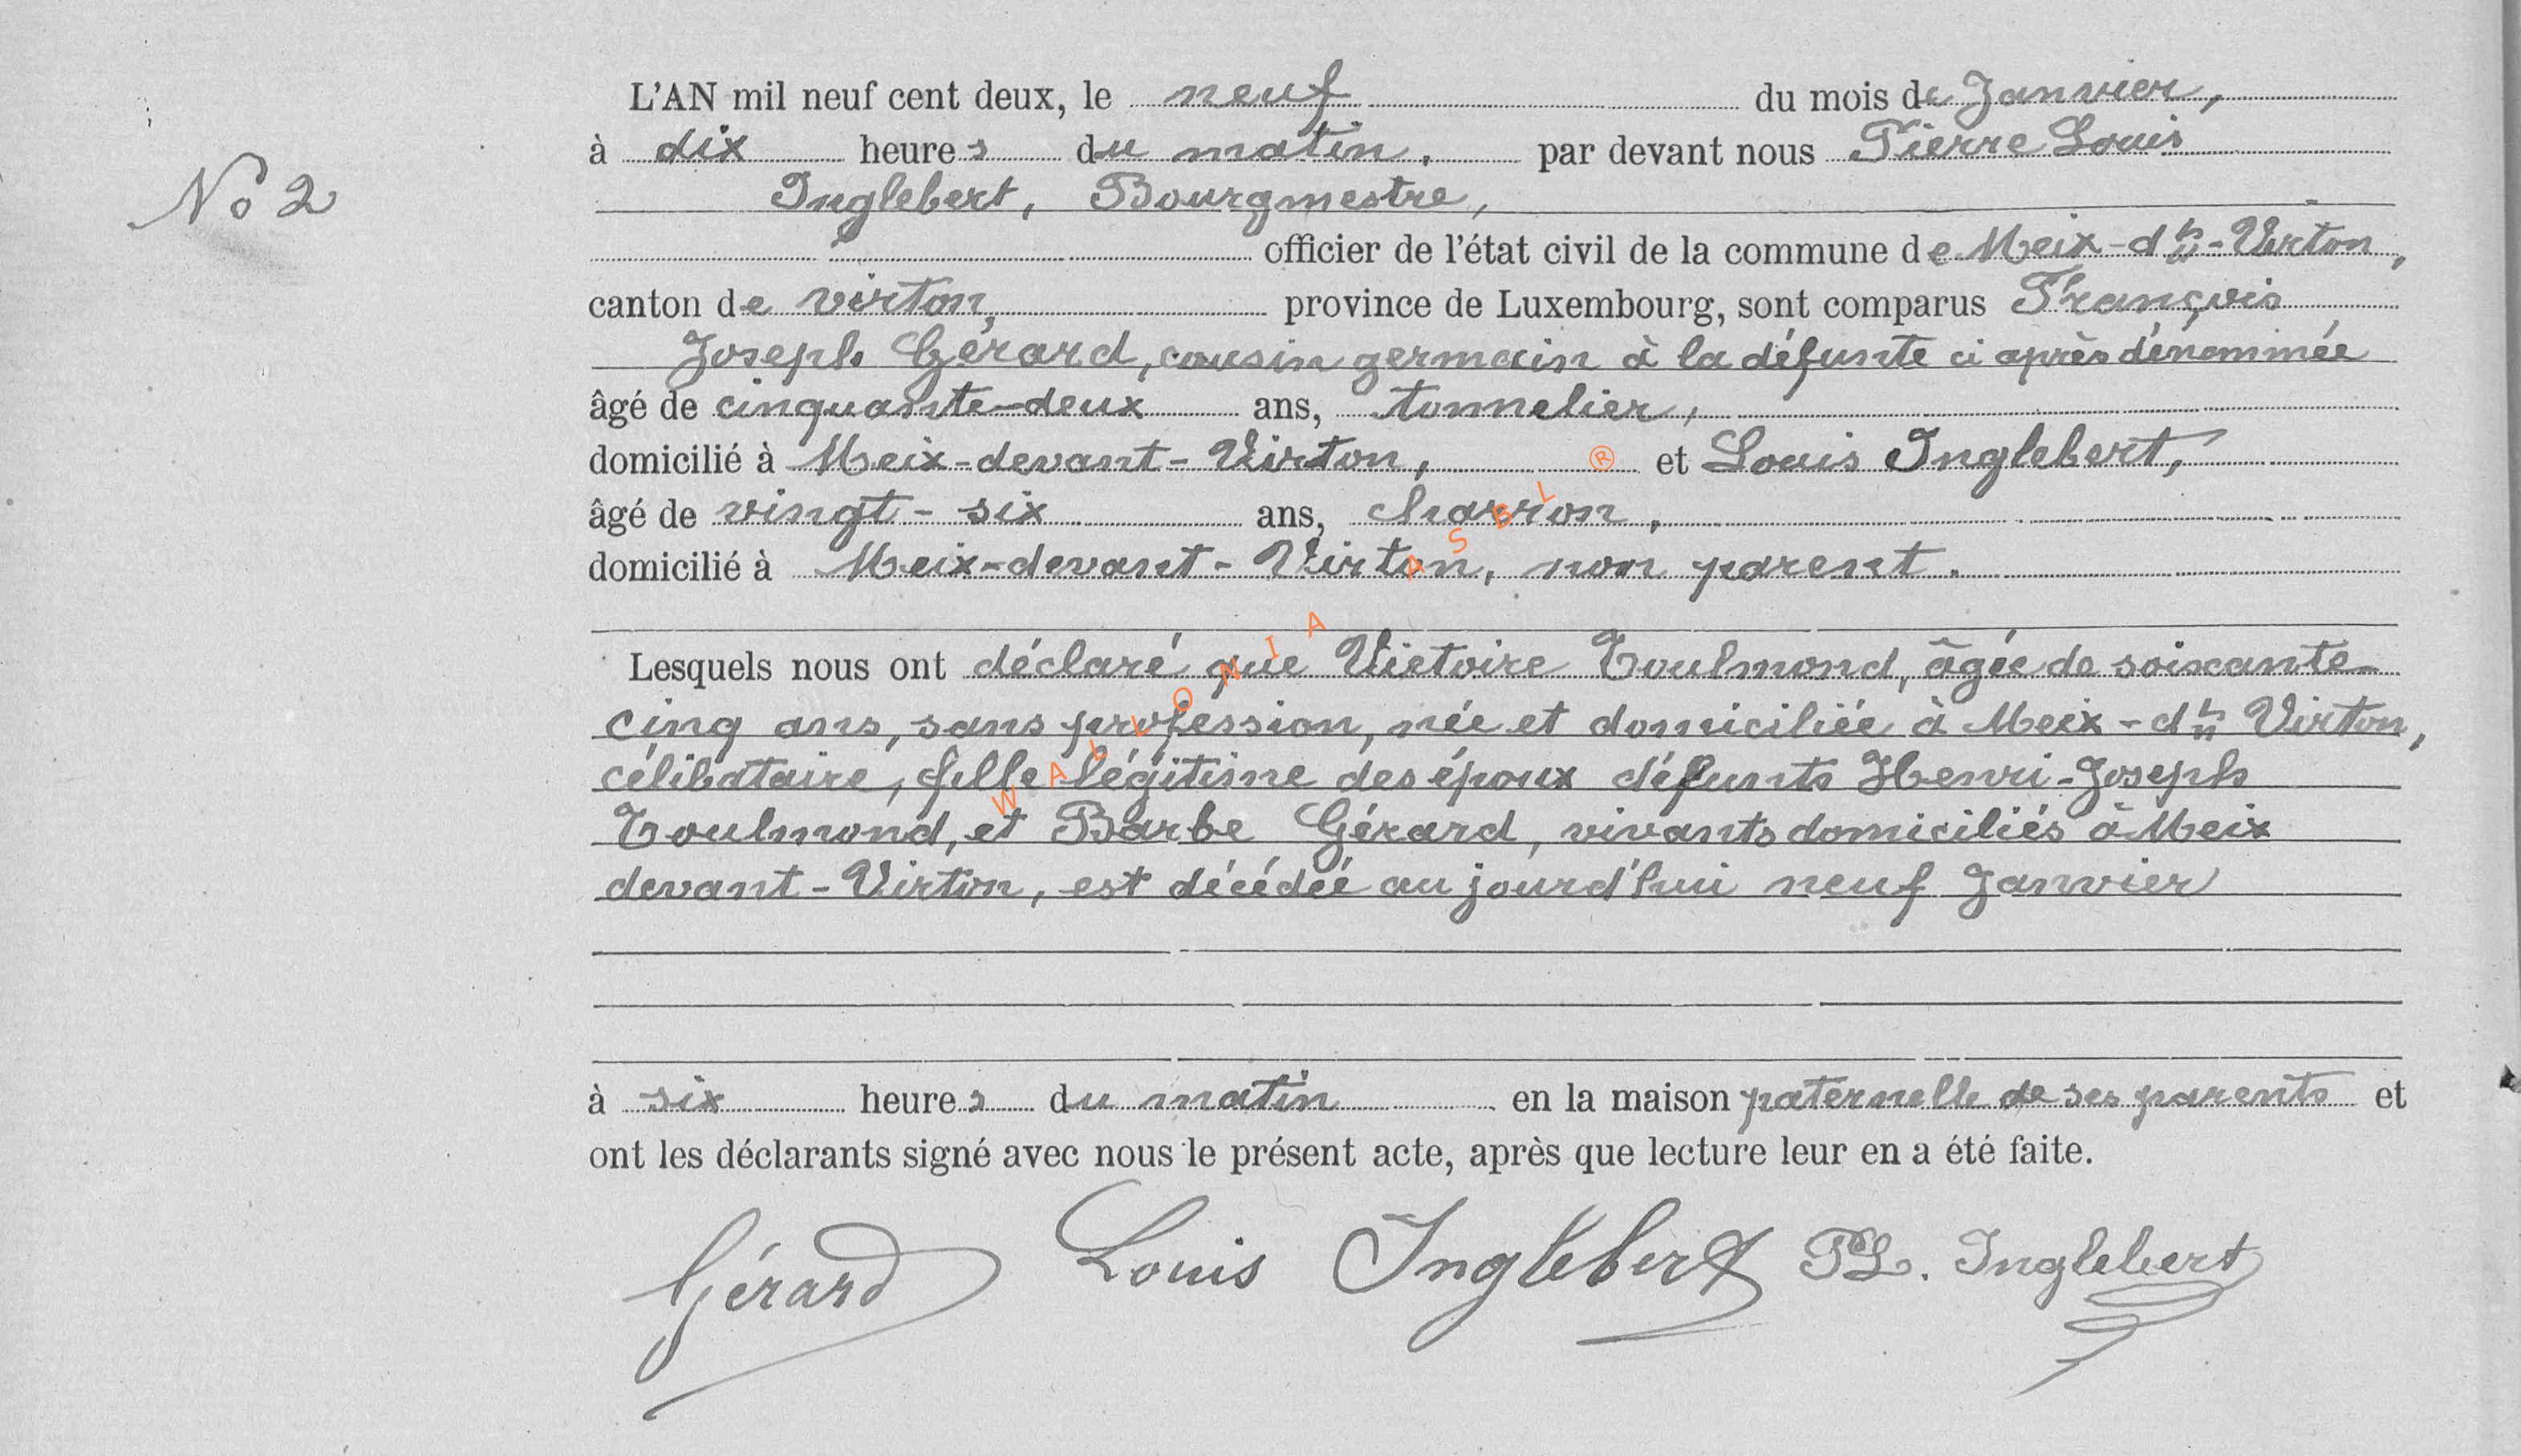 L'AN mil neuf cent deux, le neuf du mois de Janvier,
à dix heures du matin, par devant nous Pierre Louis
N° 2
Inglebert, Bourgmestre,
officier de l'état civil de la commune de Meix-dt-Virton,
canton de virton, province de Luxembourg, sont comparus François
Joseph Gérard, cousin germain à la défunte ci après dénommée
âgé de cinquante-deux ans, tonnelier,
domicilié à Meix-devant-Virton, et Louis Inglebert,
âgé de vingt-six ans, charron,
domicilié à Meix-devant-Virton, non parent.
Lesquels nous ont déclaré que Victoire Toulmond, âgée de soixante-
cinq ans, sans profession, née et domiciliée à Meix-dt Virton,
célibataire, fille légitime des époux défunts Henri-Joseph
Toulmond, et Barbe Gérard, vivants domiciliés à Meix
devant-Virton, est décédée aujourd'hui neuf Janvier
à six heures du matin en la maison paternelle de ses parents et
ont les déclarants signé avec nous le présent acte, après que lecture leur en a été faite.
Gérard Louis Inglebert PL. Inglebert
WALLONIA ASBL ®